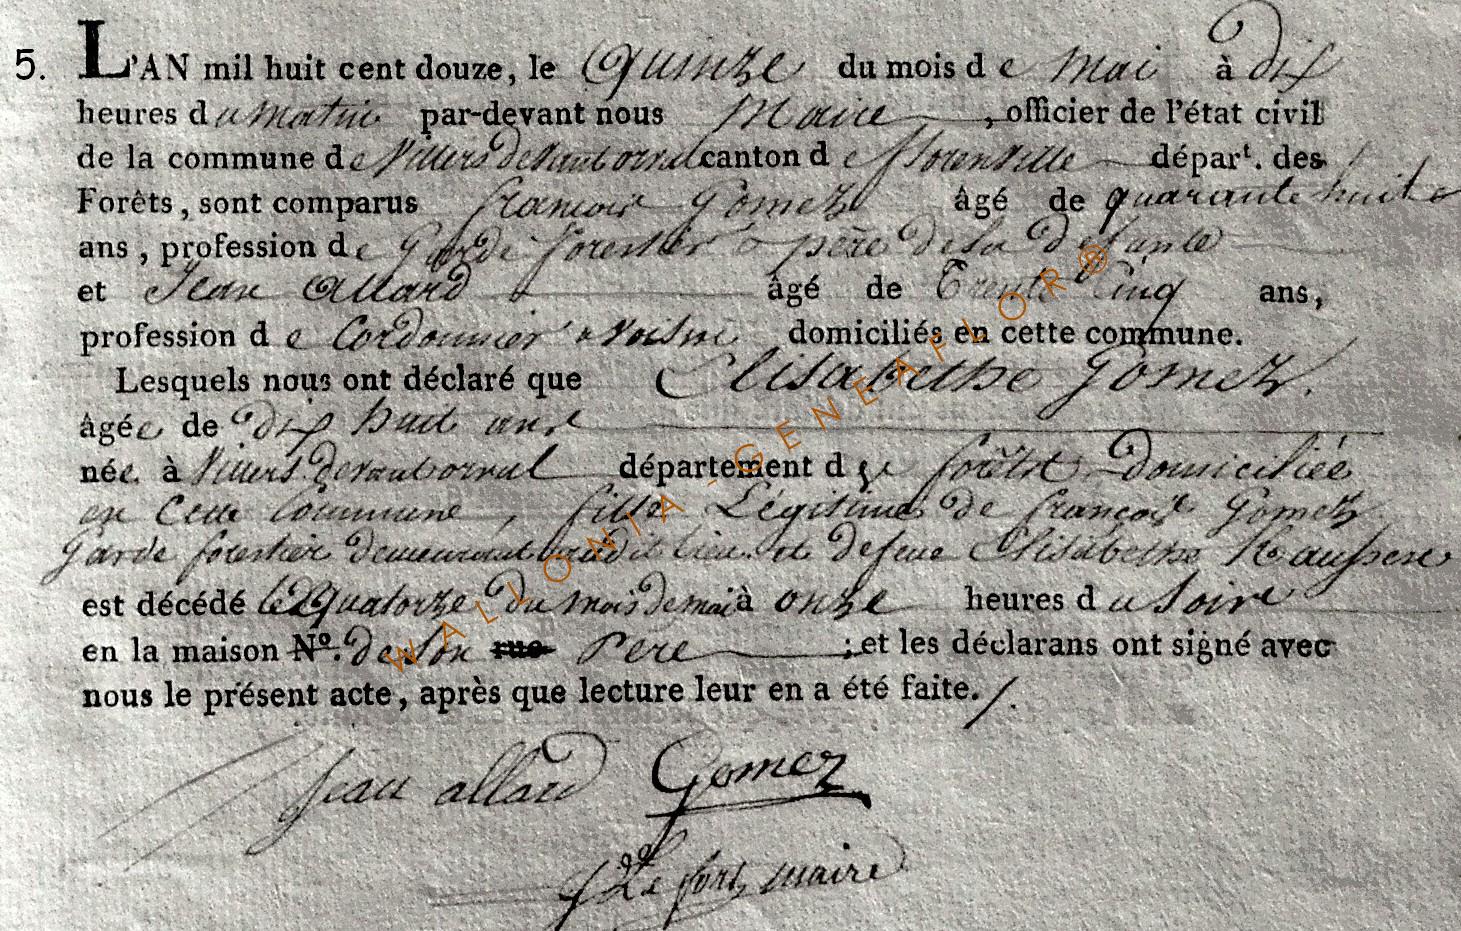 5. L'AN mil huit cent douze, le Quinze du mois de Mai à dix
heures du matin par-devant nous Maire, officier de l'état civil
de la commune de Villers devant orval canton de florenville départ. des
Forêts, sont comparus françois Gomez âgé de quarante huit
ans, profession de Garde forestier & père de la défunte
et Jean Allard âgé de Trente Cinq ans,
profession de Cordonnier & voisin domiciliés en cette commune.
Lesquels nous ont déclaré que Elisabethe Gomez.
âgée de dix huit ans
née à Villers devant orval département des forêts Domiciliée
en Cette Commune, fille Légitime de françois Gomez
Garde forestier demeurant audit lieu et de feue Elisabethe
est décédé le Quatorze du mois de mai à onze heures du soir
en la maison N.º de son rue Pere ; et les déclarans ont signé avec
nous le présent acte, après que lecture leur en a été faite./.
WALLONIA-GENEAFLOR®
Jean allard Gomez
Le fort maire